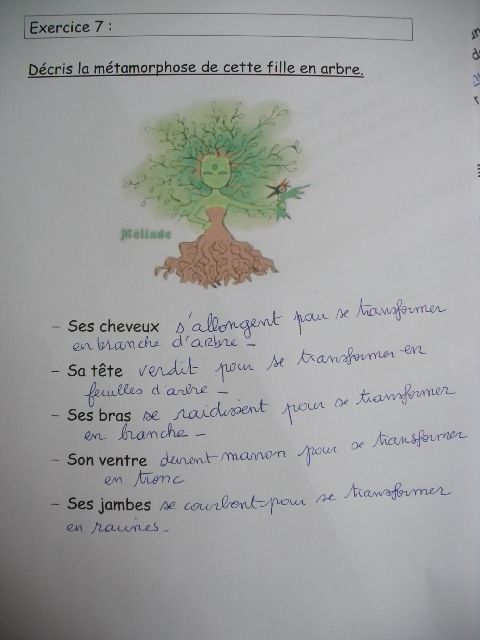 Exercice 7 :
Décris la métamorphose de cette fille en arbre.
Méliade
- Ses cheveux s'allongent pour se transformer
en branche d'arbre -
- Sa tête verdit pour se transformer en
feuilles d'arbre -
- Ses bras se raidissent pour se transformer
en branche -
- Son ventre devient marron pour se transformer
en tronc
- Ses jambes se courbent pour se transformer
en racines -